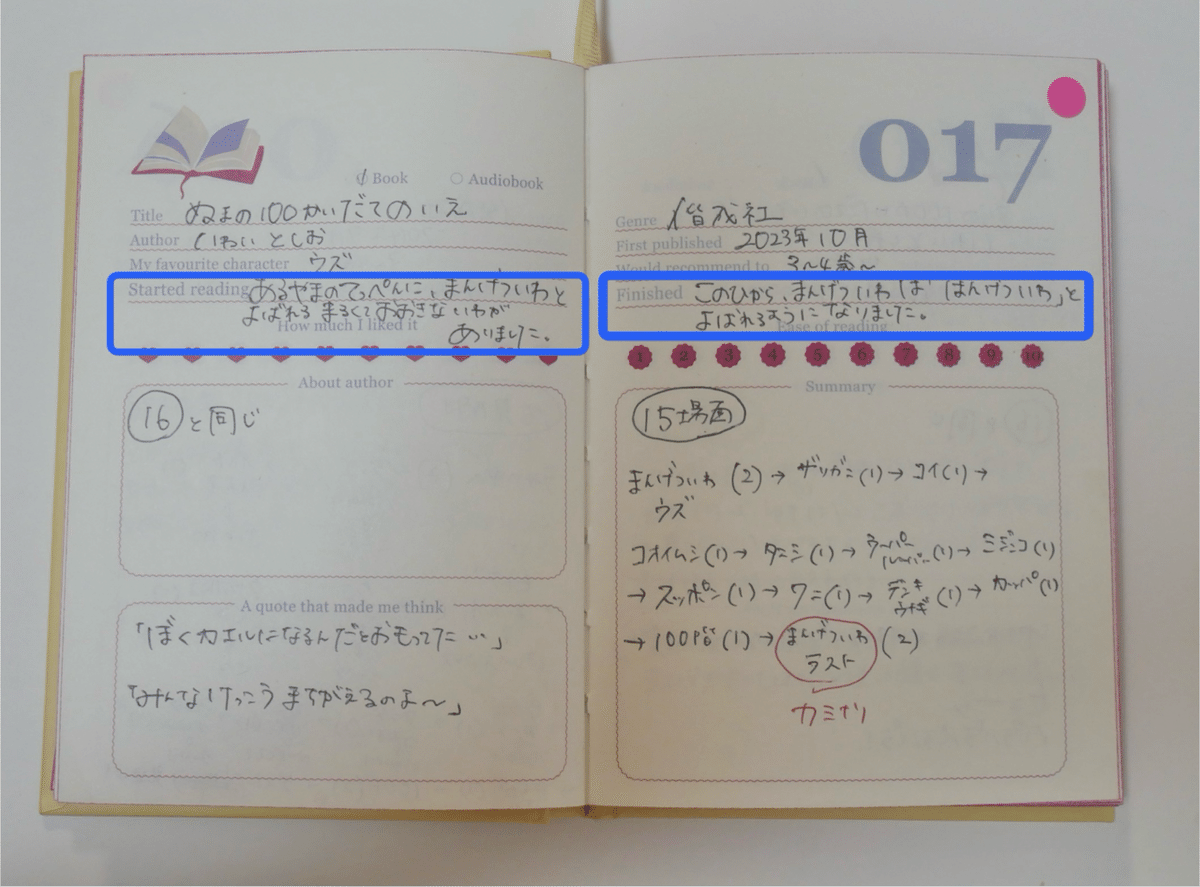 Book Audiobook
Title ぬまの100かいだてのいえ
Author いわい としお
My favourite character ウズ
Started reading あるやまのてっぺんに、まんげついわと
よばれる まるくておおきないわが
How much I liked it ありました。
About author
16 と同じ
A quote that made me think
「ぼくカエルになるんだとおもってた…」
「みんなけっこう まちがえるのよ〜」
017
Genre 偕成社
First published 2023年10月
Would recommend to 3〜4歳〜
Finished このひから、まんげついわは「はんげついわ」と
よばれるようになりました。
Ease of reading
1 2 3 4 5 6 7 8 9 10
Summary
15場面
まんげついわ (2) → ザリガニ (1) → コイ (1) →
ウズ
コオイムシ (1) → タニシ (1) → ウーパールーパー (1) → ミジンコ (1)
→ スッポン (1) → ワニ (1) → デンキウナギ (1) → カッパ (1)
→ 100階 (1) → まんげついわ (2)
ラスト
カミナリ